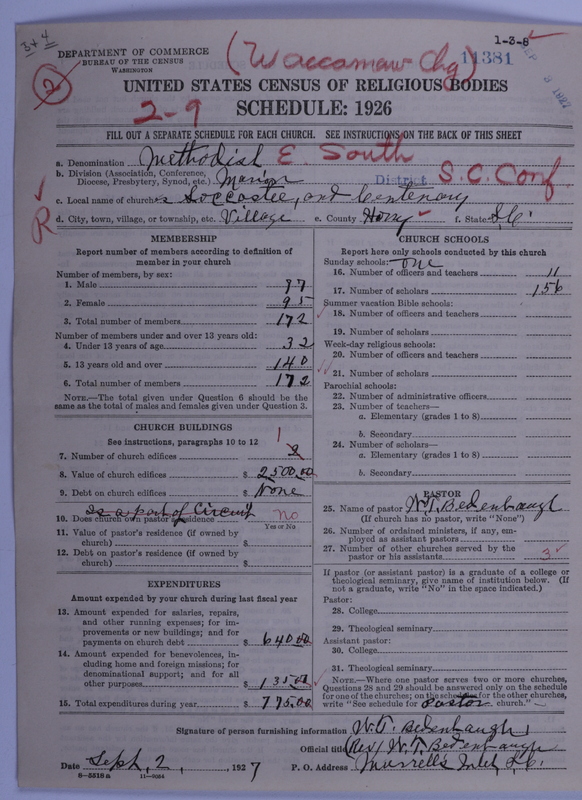 3 x 4
1-3-8
DEPARTMENT OF COMMERCE
BUREAU OF THE CENSUS
WASHINGTON
(Waccamaw Chg)
11381
SEP 3 1927
2
UNITED STATES CENSUS OF RELIGIOUS BODIES
2-9
SCHEDULE: 1926
FILL OUT A SEPARATE SCHEDULE FOR EACH CHURCH. SEE INSTRUCTIONS ON THE BACK OF THIS SHEET
a. Denomination Methodish E. South
b. Division (Association, Conference,
Diocese, Presbytery, Synod, etc.) Marion District S.C. Conf
c. Local name of churches Soccastee, and Centenary
R
d. City, town, village, or township, etc. Village e. County Horry f. State S.C.
MEMBERSHIP
Report number of members according to definition of
member in your church
Number of members, by sex:
1. Male
2. Female 95
3. Total number of members 172
Number of members under and over 13 years old:
4. Under 13 years of age 32
5. 13 years old and over 140
6. Total number of members 172
NOTE.—The total given under Question 6 should be the
same as the total of males and females given under Question 3.
CHURCH BUILDINGS
See instructions, paragraphs 10 to 12
7. Number of church edifices 1 2
8. Value of church edifices $ 2500.00
9. Debt on church edifices $ None
Is a part of Circuit
10. Does church own pastor's residence No
Yes or No
11. Value of pastor's residence (if owned by
church) $
12. Debt on pastor's residence (if owned by
church) $
EXPENDITURES
Amount expended by your church during last fiscal year
13. Amount expended for salaries, repairs,
and other running expenses; for im-
provements or new buildings; and for
payments on church debt $ 640.00
14. Amount expended for benevolences, in-
cluding home and foreign missions; for
denominational support; and for all
other purposes $ 135.00
15. Total expenditures during year $ 775.00
CHURCH SCHOOLS
Report here only schools conducted by this church
Sunday schools: one
16. Number of officers and teachers 11
17. Number of scholars 156
Summer vacation Bible schools:
18. Number of officers and teachers
19. Number of scholars
Week-day religious schools:
20. Number of officers and teachers
21. Number of scholars
Parochial schools:
22. Number of administrative officers
23. Number of teachers—
a. Elementary (grades 1 to 8)
b. Secondary
24. Number of scholars—
a. Elementary (grades 1 to 8)
b. Secondary
PASTOR
25. Name of pastor W.T. Bedenbaugh
(If church has no pastor, write "None")
26. Number of ordained ministers, if any, em-
ployed as assistant pastors
27. Number of other churches served by the
pastor or his assistants 3
If pastor (or assistant pastor) is a graduate of a college or
theological seminary, give name of institution below. (If
not a graduate, write "No" in the space indicated.)
Pastor:
28. College
29. Theological seminary
Assistant pastor:
30. College
31. Theological seminary
NOTE.—Where one pastor serves two or more churches,
Questions 28 and 29 should be answered only on the schedule
for one of the churches; on the schedules for the other churches,
write "See schedule for Pastor church."
Signature of person furnishing information W.T. Bedenbaugh
Official title (Rev) W.T. Bedenbaugh
Date Sept, 2, 1927 P. O. Address Murrells Inlet, S.C.
8-5518 a 11-9054